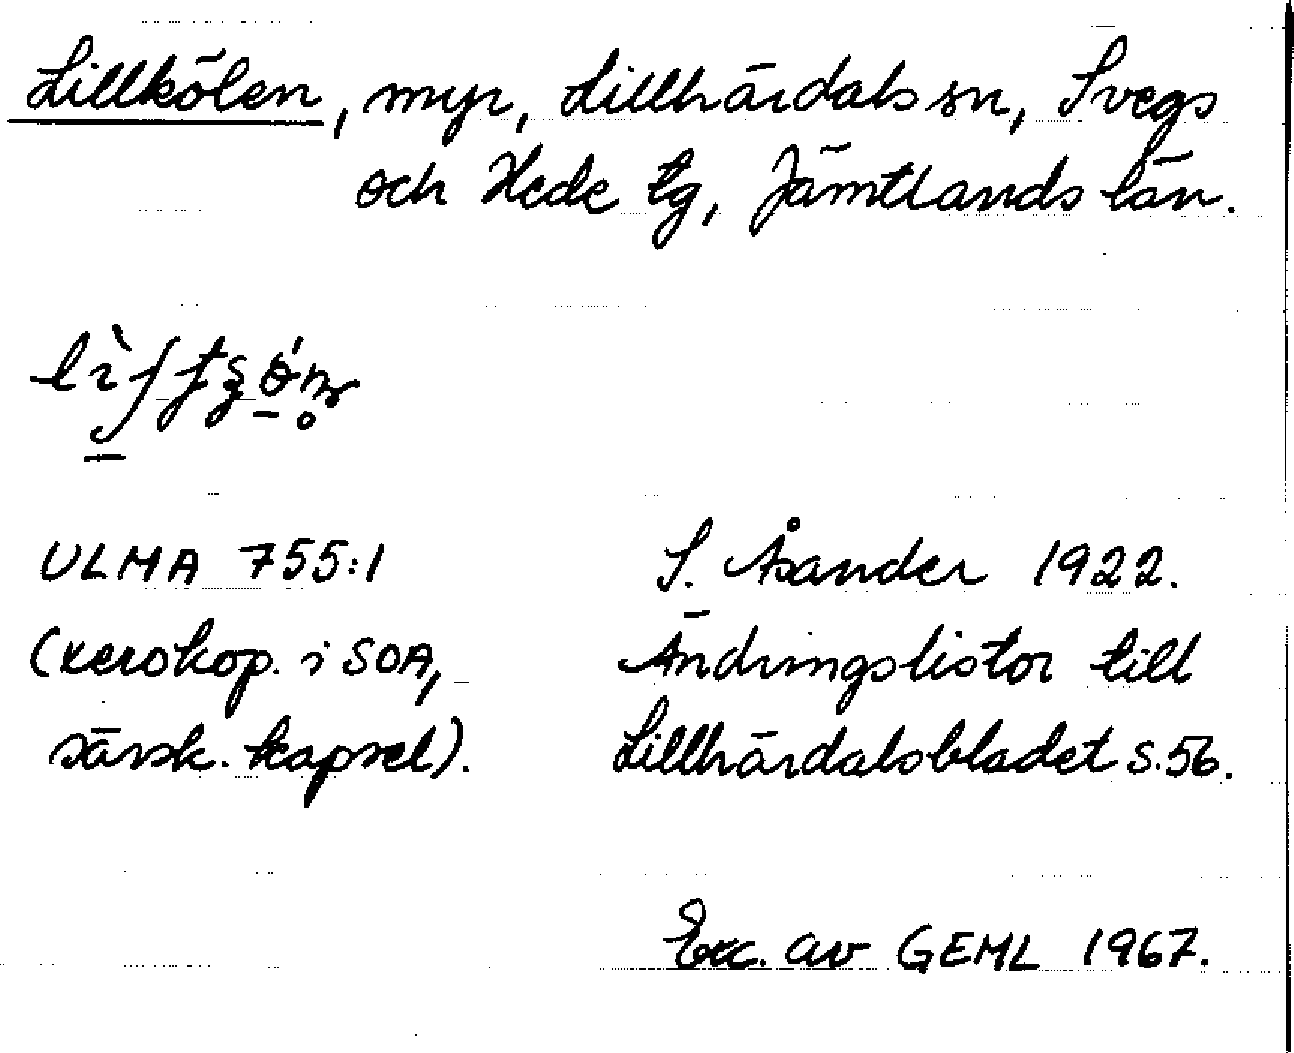 Lillkölen, myr, Lillhärdals sn, Svegs
och Hede tg, Jämtlands län.
ULMA 755:1
(xerokop. i SOA,
särsk. kapsel).
S. Åsander 1922.
Ändringslistor till
Lillhärdalsbladet s. 56.
Exc. av GEML 1967.